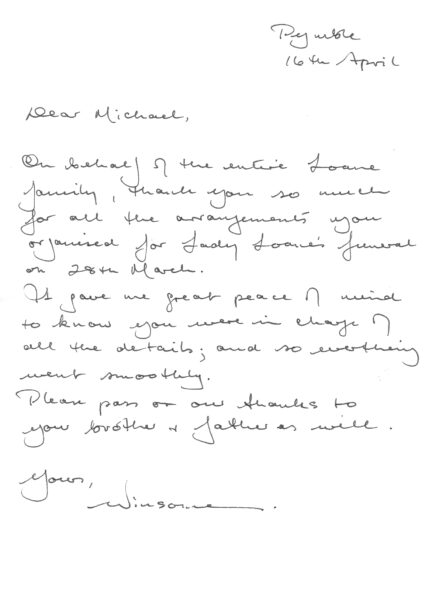 Pymble
16th April
Dear Michael,
On behalf of the entire Loane
family, thank you so much
for all the arrangements you
organised for Lady Loane's funeral
on 28th March.
It gave me great peace of mind
to know you were in charge of
all the details; and so everthing
went smoothly.
Please pass on our thanks to
your brother & father as well.
Yours,
Winsome.